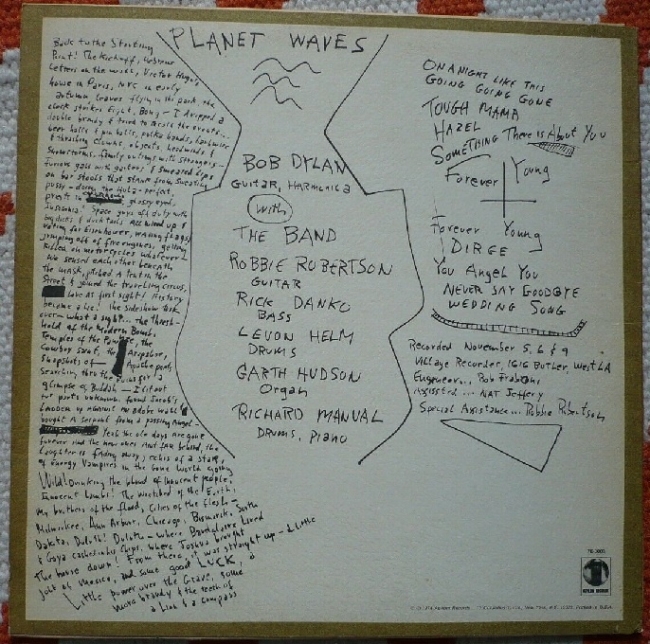 Back to the Starting
Point! The Kickoff, Hebrew
Letters on the wall, Victor Hugo's
house in Paris, NYC in early
autumn, leaves flying in the park, the
clock strikes Eight, Bong - I dropped a
double brandy & tried to recall the events...
beer halls & pin balls, polka bands, barbwire
& thrashing clowns, objects, headwinds &
snowstorms, family outings with strangers -
Furious gals with garters & smeared lips
on bar stools that stank from sweating
pussy - doing the Hula - perfect,
priests in glassy eyed,
Insomnia! Space guys off duty with
big dicks & duck tails all wired up &
voting for Eisenhower, waving flags,
jumping off of fire engines, getting
killed on motorcycles whatever -
We sensed each other beneath
the mask, pitched a tent in the
Street & joined the traveling circus,
love at first sight! History
became a lie! the sideshow took
over - what a sight... the thresh-
hold of the Modern Bomb,
Temples of the
Cowboy Saint, the Arapahoe,
snapshots of - Apache poets
Searching thru the for a
glimpse of Buddah - I lit out
for parts unknown, found Jacob's
Ladder up against an adobe wall &
bought a serpent from a passing angel -
Yeah the old days are gone
forever and the new ones ain't far behind, the
Laughter is fading away, echos of a star,
of Energy Vampires in the Gone World going
Wild! Drinking the blood of innocent people,
Innocent lambs! The wretched of the Earth,
My brothers of the flood, cities of the flesh -
Milwaukee, Ann Arbor, Chicago, Bismarck, South
Dakota, Duluth! Duluth - where Baudelaire Lived
& Goya cashed in his Chips, where Joshua brought
the house down! From there, it was straight up - a little
jolt of Mexico, and some good LUCK, a
Little power over the Grave, some
more brandy & the teeth of
a Lion & a compass
PLANET WAVES
BOB DYLAN
GUITAR, HARMONICA
with
THE BAND
ROBBIE ROBERTSON
GUITAR
RICK DANKO
BASS
LEVON HELM
DRUMS
GARTH HUDSON
Organ
RICHARD MANUAL
DRUMS, PIANO
ON A NIGHT LIKE THIS
GOING GOING GONE
TOUGH MAMA
HAZEL
SOMETHING There is About You
Forever Young
Forever Young
DIRGE
You Angel You
NEVER SAY GOODBYE
WEDDING SONG
Recorded November 5, 6, & 9
Village Recorder, 1616 Butler, West LA
Engeneer... Rob Fraboni
Assisted... NAT Jeffery
Special Assistance... Robbie Robertson